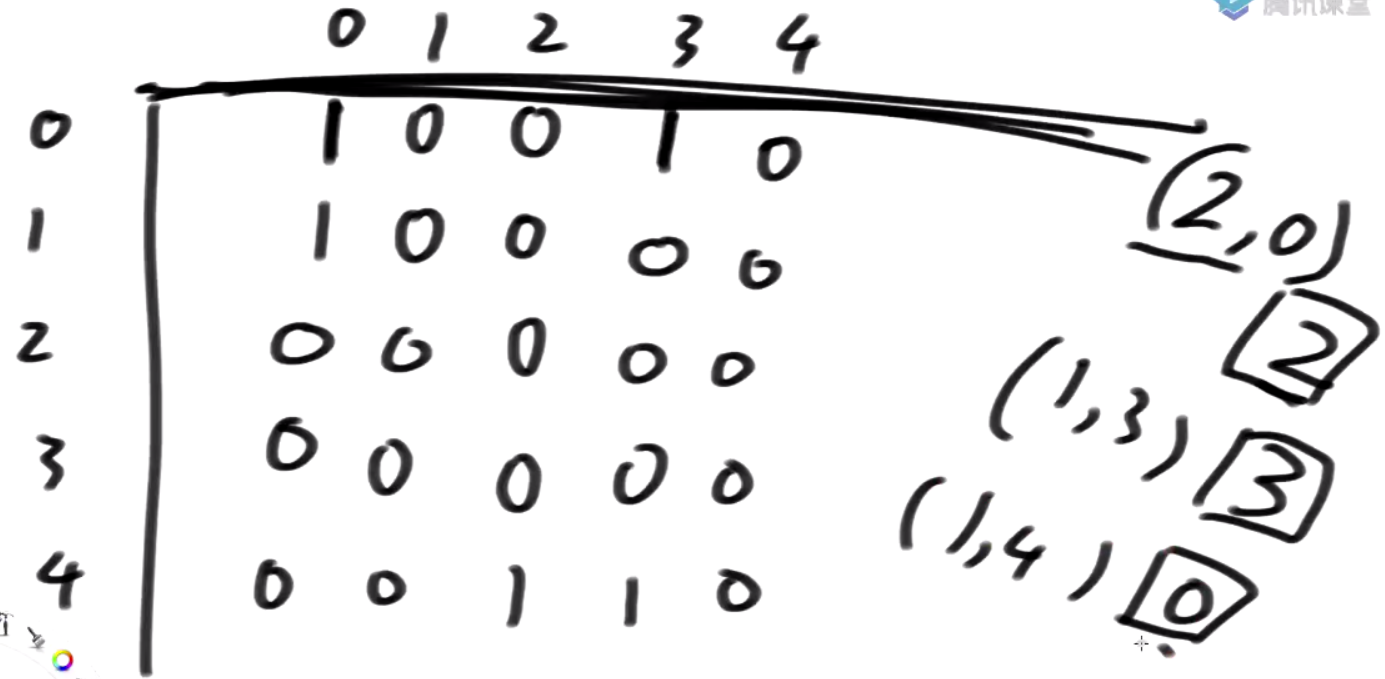 腾讯课堂
0 1 2 3 4
0 1 0 0 1 0
1 1 0 0 0 0
2 0 0 0 0 0
3 0 0 0 0 0
4 0 0 1 1 0
(2,0)
2
(1,3) 3
(1,4) 0